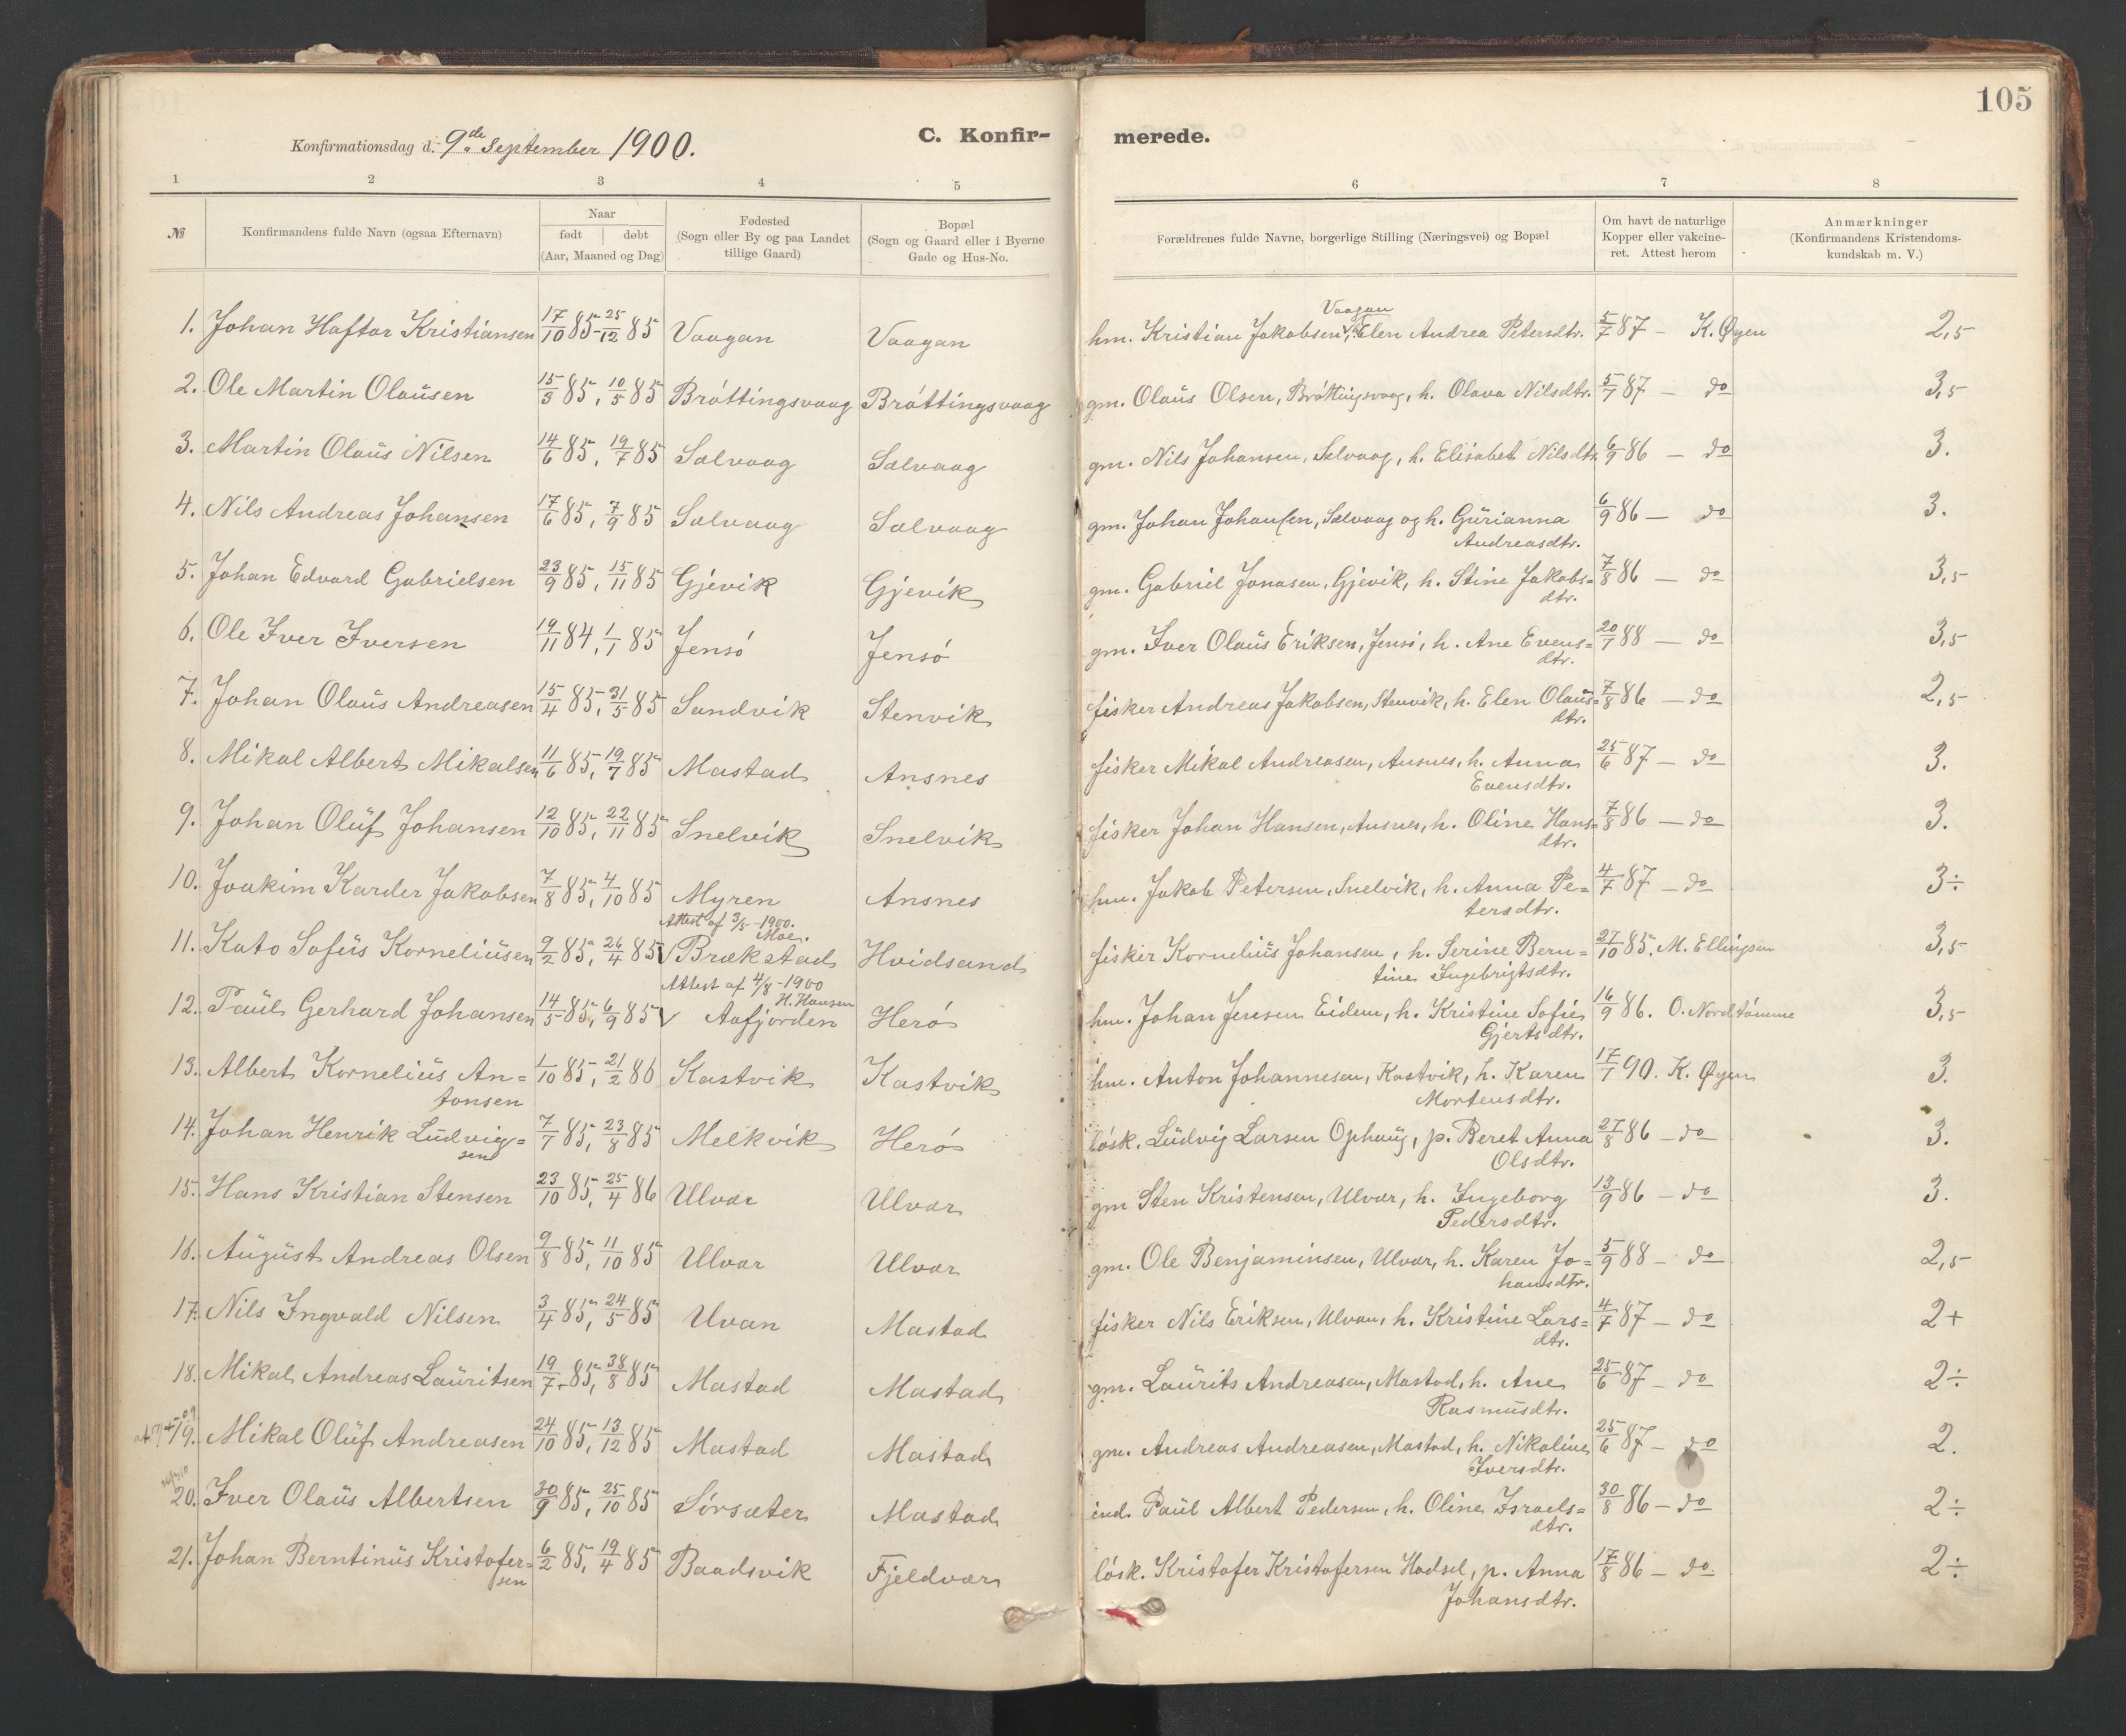 105
Konfirmationsdag d. 9de September 1900.
C. Konfir-
merede.
1 2 3 4 5 6 7 8
№
Konfirmandens fulde Navn (ogsaa Efternavn)
Naar
født | døbt
(Aar, Maaned og Dag)
Fødested
(Sogn eller By og paa Landet
tillige Gaard)
Bopæl
(Sogn og Gaard eller i Byerne
Gade og Hus-No.
Forældrenes fulde Navne, borgerlige Stilling (Næringsvei) og Bopæl
Om havt de naturlige
Kopper eller vakcine-
ret. Attest herom
Anmærkninger
(Konfirmandens Kristendoms-
kundskab m. V.)
Vaagan
1. Johan Haftor Kristiansen 17/10 85 - 25/12 85 Vaagan Vaagan hm. Kristian Jakobsen, h. Elen Andrea Petersdtr. 5/7 87 - K. Øyen 2,5
2. Ole Martin Olausen 15/3 85, 10/5 85 Bröttingsvaag Bröttingsvaag gm. Olaus Olsen, Bröttingsvaag, h. Olava Nilsdtr. 5/7 87 - do 3,5
3. Martin Olaus Nilsen 14/6 85, 19/7 85 Sælvaag Sælvaag gm. Nils Johansen, Selvaag, h. Elisabet Nilsdtr. 6/9 86 - do 3.
4. Nils Andreas Johansen 17/6 85, 7/9 85 Sælvaag Sælvaag gm. Johan Johansen, Sælvaag og h. Gurianna 6/9 86 - do 3.
Andreasdtr.
5. Johan Edvard Gabrielsen 23/9 85, 15/11 85 Gjevik Gjevik gm. Gabriel Jonasen, Gjevik, h. Stine Jakobs= 7/8 86 - do 3,5
dtr.
6. Ole Iver Iversen 19/11 84, 1/1 85 Jensö Jensö gm. Iver Olaus Eriksen, Jensö, h. Ane Evens= 20/7 88 - do 3,5
dtr.
7. Johan Olaus Andreasen 15/4 85, 31/5 85 Sandvik Stenvik fisker Andreas Jakobsen, Stenvik, h. Elen Olaus= 7/8 86 - do 2,5
dtr.
8. Mikal Albert Mikalsen 11/6 85, 19/7 85 Mastad Ansnes fisker Mikal Andreasen, Ansnes, h. Anna 25/6 87 - do 3.
Evensdtr.
9. Johan Oluf Johansen 12/10 85, 22/11 85 Snelvik Snelvik fisker Johan Hansen, Ansnes, h. Oline Hans= 7/8 86 - do 3.
dtr.
10. Joakim Karder Jakobsen 7/8 85, 4/10 85 Myren Ansnes hm. Jakob Petersen, Snelvik, h. Anna Pe= 4/7 87 - do 3÷
tersdtr.
Attest af 3/5 - 1900.
Moe.
11. Kato Sofus Korneliusen 9/2 85, 26/4 85 √ Brækstad Hvidsand fisker Kornelius Johansen, h. Serine Bern= 27/10 85, M. Ellingsen 3,5
tine Ingebrigtsdtr.
Attest af 4/8 - 1900
H. Hansen
12. Paul Gerhard Johansen 14/5 85, 6/9 85 √ Aafjorden Herö hm. Johan Jensen Eidem, h. Kristine Sofie 16/9 86. O. Nordtömme 3,5
Gjertsdtr.
13. Albert Kornelius An= 1/10 85, 21/2 86 Kastvik Kastvik hm. Anton Johannesen, Kastvik, h. Karen 17/7 90. K. Øyen 3.
tonsen
Mortensdtr.
14. Johan Henrik Ludvig= 7/7 85, 23/8 85 Melkvik Herö lösk. Ludvig Larsen Ophaug, p. Beret Anna 27/8 86 - do 3.
sen
Olsdtr.
15. Hans Kristian Stensen 23/10 85, 25/4 86 Ulvær Ulvær gm Sten Kristensen, Ulvær, h. Ingeborg 13/9 86 - do 3.
Pedersdtr.
16. August Andreas Olsen 9/8 85, 11/10 85 Ulvær Ulvær gm. Ole Benjaminsen, Ulvær, h. Karen Jo= 5/9 88 - do 2,5
hansdtr.
17. Nils Ingvald Nilsen 3/4 85, 24/5 85 Ulvan Mastad fisker Nils Eriksen, Ulvan, h. Kristine Lars= 4/7 87 - do 2+
dtr.
18. Mikal Andreas Lauritsen 19/7 85, 38/8 85 Mastad Mastad gm. Laurits Andreasen, Mastad, h. Ane 25/6 87 - do 2÷
Rasmusdtr.
19. Mikal Oluf Andreasen 24/10 85, 13/12 85 Mastad Mastad gm. Andreas Andreasen, Mastad, h. Nikoline 25/6 87 - do 2.
Iversdtr.
20. Iver Olaus Albertsen 30/9 85, 25/10 85 Sörsæter Mastad ind. Paul Albert Pedersen, h. Oline Israels= 30/8 86 - do 2÷
dtr.
21. Johan Berntinus Kristofer= 6/2 85, 19/4 85 Baadsvik Fjeldvær lösk. Kristofer Kristofersen Hadsel, p. Anna 17/8 86 - do. 2÷
sen
Johansdtr.